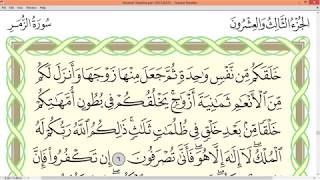 الجزء الثالث والعشرون
سورة الزمر
خَلَقَكُم مِّن نَّفْسٍ وَٰحِدَةٍ ثُمَّ جَعَلَ مِنْهَا زَوْجَهَا وَأَنزَلَ لَكُم
مِّنَ ٱلْأَنْعَٰمِ ثَمَٰنِيَةَ أَزْوَٰجٍ ۚ يَخْلُقُكُمْ فِى بُطُونِ أُمَّهَٰتِكُمْ
خَلْقًا مِّنۢ بَعْدِ خَلْقٍ فِى ظُلُمَٰتٍ ثَلَٰثٍ ۚ ذَٰلِكُمُ ٱللَّهُ رَبُّكُمْ لَهُ
ٱلْمُلْكُ ۖ لَآ إِلَٰهَ إِلَّا هُوَ ۖ فَأَنَّىٰ تُصْرَفُونَ ٦ إِن تَكْفُرُوا۟ فَإِنَّ